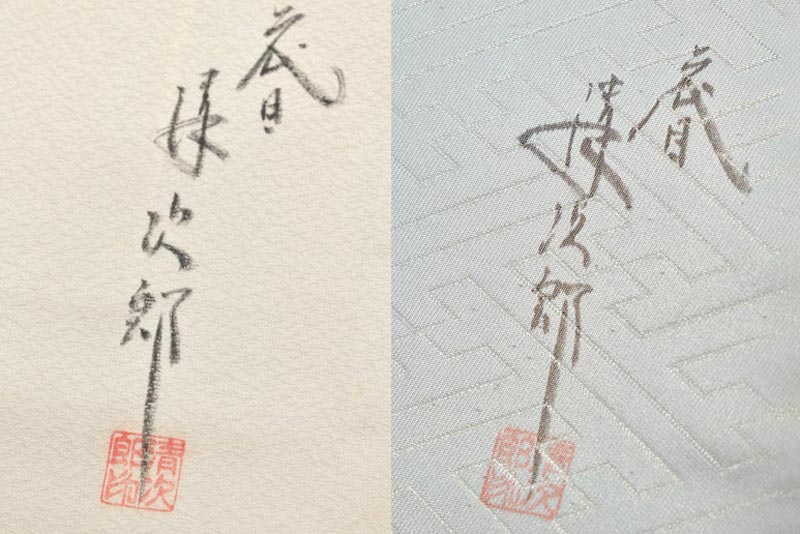 清次郎
清次
郎印
清次郎
清次
郎印